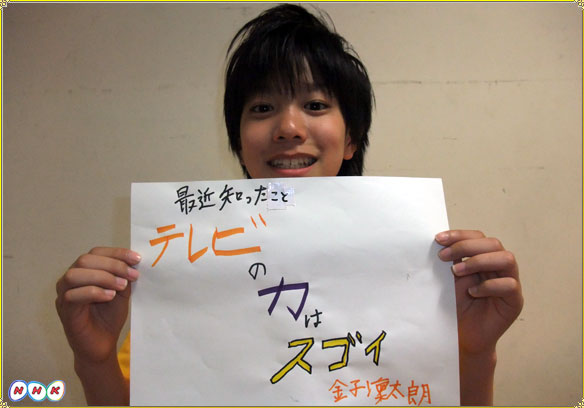 最近知ったこと
テレビ
の
力は
スゴイ
金子凜太朗
NHK